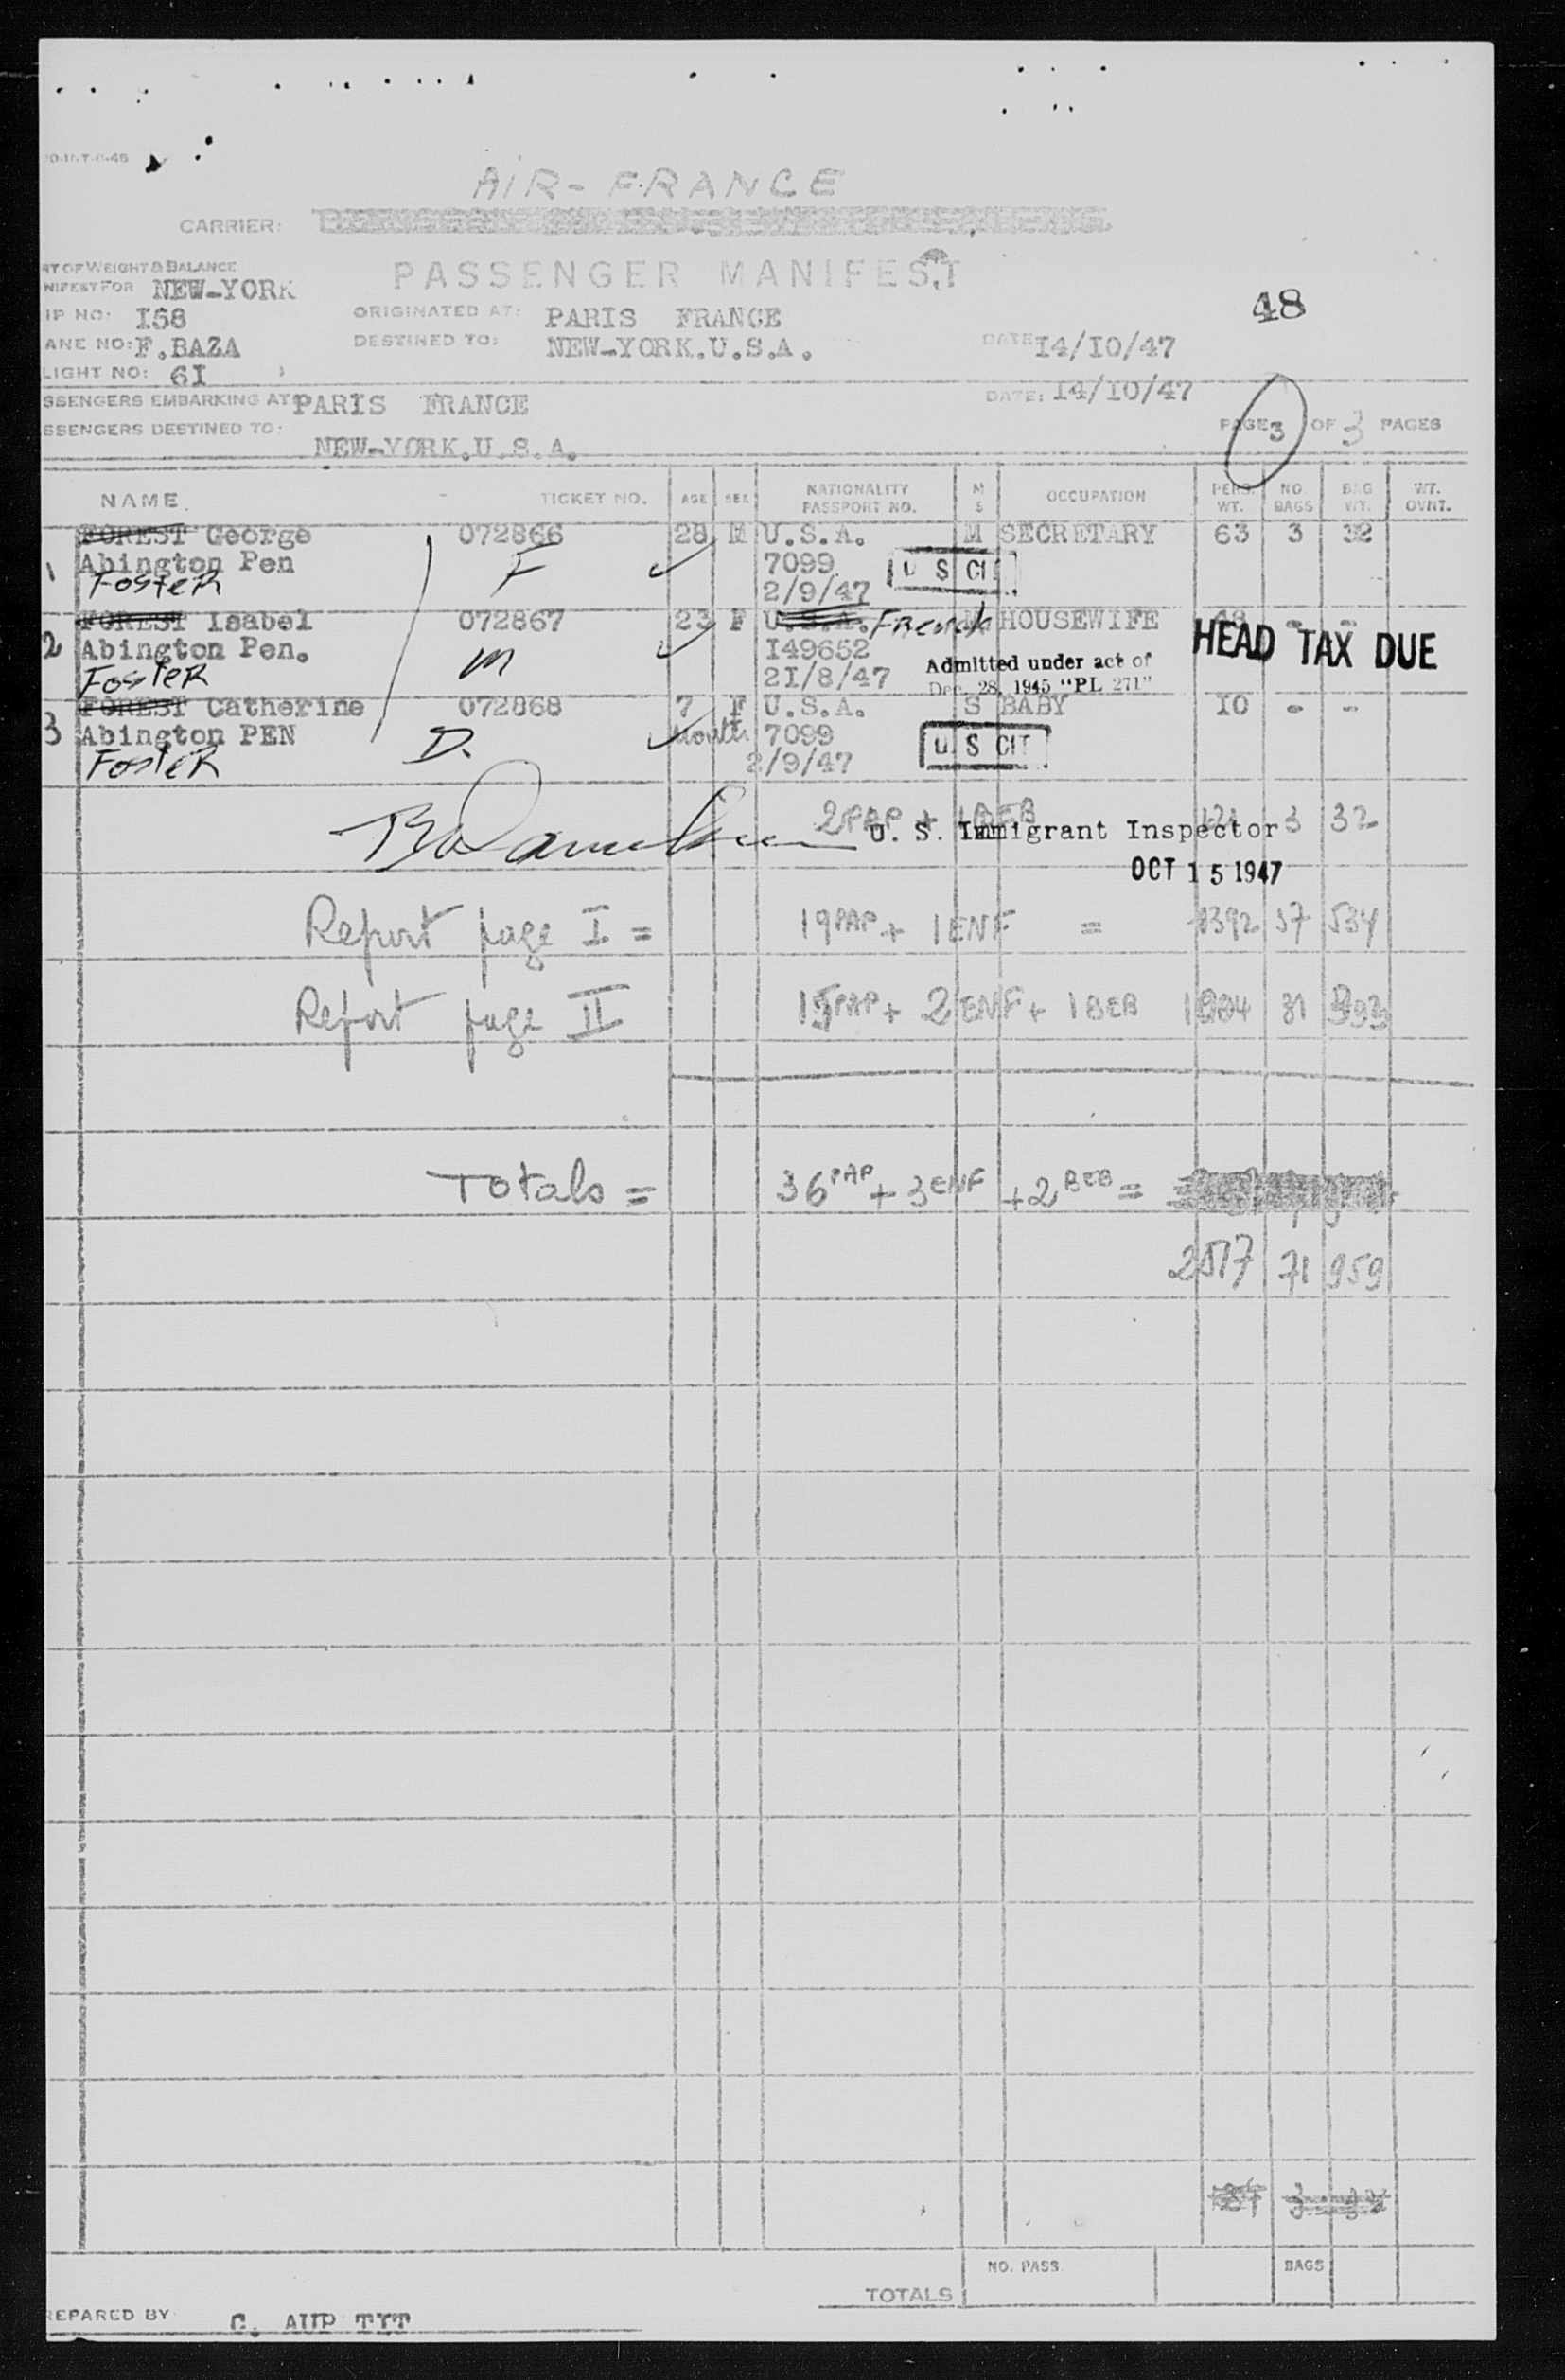 AIR-FRANCE
CARRIER:
PASSENGER MANIFEST
RT OF WEIGHT & BALANCE
NIFEST FOR NEW-YORK
48
IP NO: I58
ORIGINATED AT: PARIS FRANCE
ANE NO: F.BAZA
DESTINED TO: NEW-YORK.U.S.A.
DATE: I4/IO/47
LIGHT NO: 6I
SSENGERS EMBARKING AT: PARIS FRANCE
DATE: I4/IO/47
SSENGERS DESTINED TO: NEW-YORK.U.S.A.
PAGE 3 OF 3 PAGES
NAME. TICKET NO. AGE SEX NATIONALITY PASSPORT NO. M S OCCUPATION PERS. WT. NO. BAGS BAG WT. WT. OVNT.
FOREST George 072866 28 M U.S.A. M SECRETARY 63 3 32
1 Abington Pen F 7099 U S CIT
Foster 2/9/47
FOREST Isabel 072867 23 F U.S.A. French M HOUSEWIFE 48 - -
2 Abington Pen. M I49652 HEAD TAX DUE
Foster 2I/8/47 Admitted under act of
Dec. 28, 1945 "PL 271"
FOREST Catherine 072868 7 F U.S.A. S BABY IO - -
3 Abington PEN D. Month 7099 U S CIT
Foster 2/9/47
2 PAP + 1 BEB 121 3 32
U. S. Immigrant Inspector
OCT 15 1947
Report page I = 19 PAP + 1 ENF = 1392 37 534
Report page II 15 PAP + 2 ENF + 1 BEB 1004 31 393
Totals = 36 PAP + 3 ENF + 2 BEB =
2517 71 959
NO. PASS. BAGS
TOTALS
REPARED BY C. AUP TYT